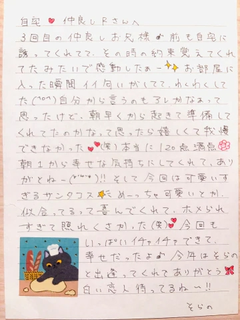 自宅❤仲良しRさんへ
3回目の仲良しお兄様♪前も自宅に
誘ってくれてて、その時の約束覚えてくれ
てたみたいで感動したぁー✨お部屋に
入った瞬間イイ匂いがしてて、わくわくして
た(^o^)自分から言うのもアレかなぁって
思ったけど、朝早くから起きて準備して
くれてたのかなって思ったら嬉しくて我慢
できなかった❤(笑)本当に120点満点
朝1から幸せな気持ちにしてくれて、あり
がとねー(^^)!!そして今回は可愛いす
ぎるサンタコス☆めーっちゃ可愛いとか、
似合ってるって喜んでくれて、ホメられ
すぎて照れくさかった(笑)❤今回も
いっぱいイチャイチャできて、
幸せだったよ♪今年はそらの
と出逢ってくれてありがとう
白い恋人待ってるねー!!
そらの